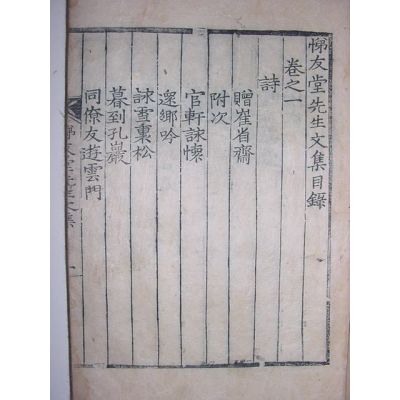 悌友堂先生文集目錄
卷之一
詩
贈崔省齋
附次
官軒詠懷
還鄉吟
詠雪裏松
暮到孔巖
同僚友遊雲門